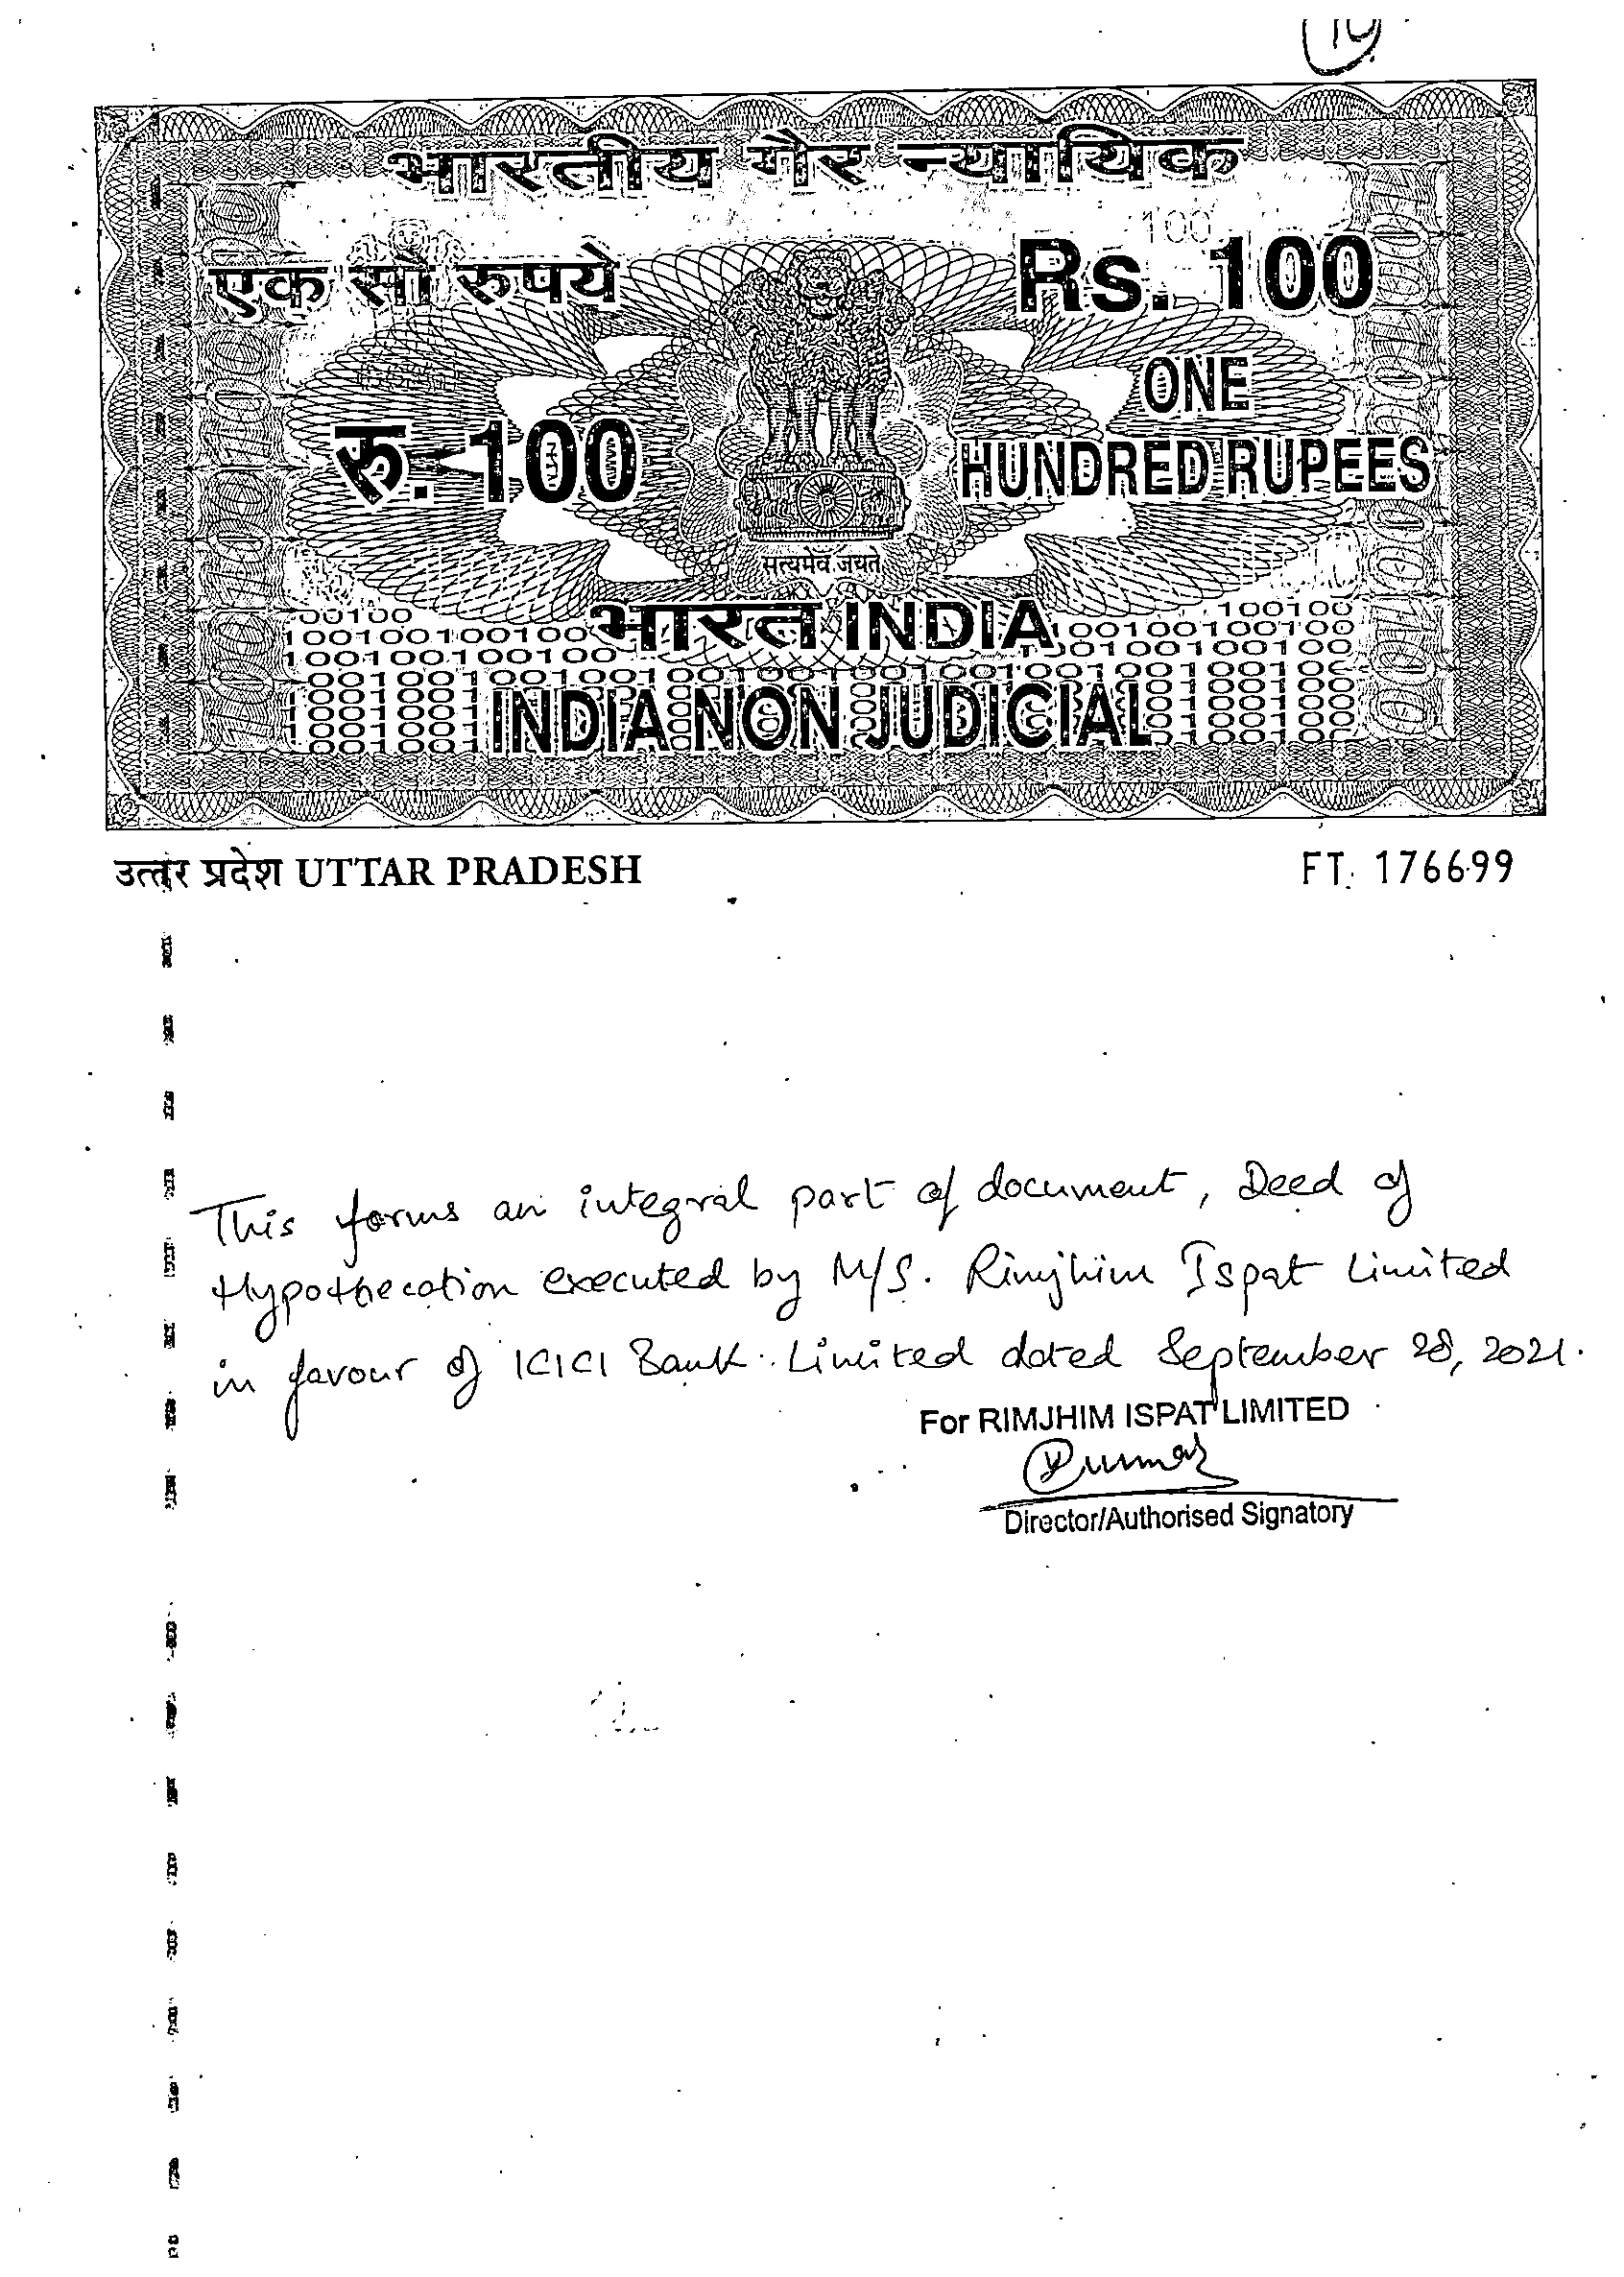 भारतीय गैर न्यायिक
एक सौ रुपये
Rs. 100
रु. 100
ONE
HUNDRED RUPEES
सत्यमेव जयते
भारत INDIA
INDIA NON JUDICIAL
उत्तर प्रदेश UTTAR PRADESH
FT 176699
This forms an integral part of document, Deed of
Hypothecation executed by M/S. Rimjhim Ispat Limited
in favour of ICICI Bank Limited dated September 28, 2021.
For RIMJHIM ISPAT LIMITED
Director/Authorised Signatory